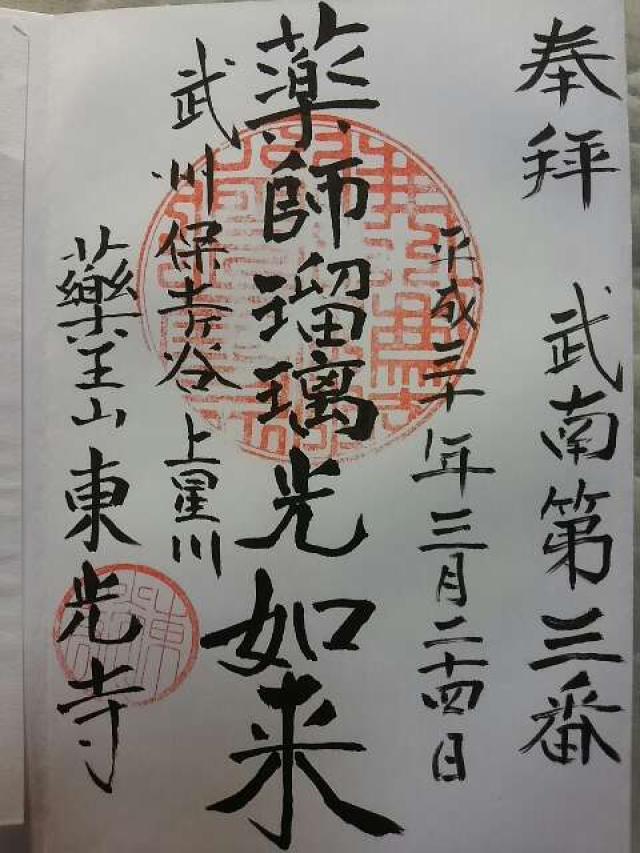 奉拝 武南第三番
平成三十年三月二十四日
薬師瑠璃光如来
武州保土ヶ谷 上星川
藥王山東光寺